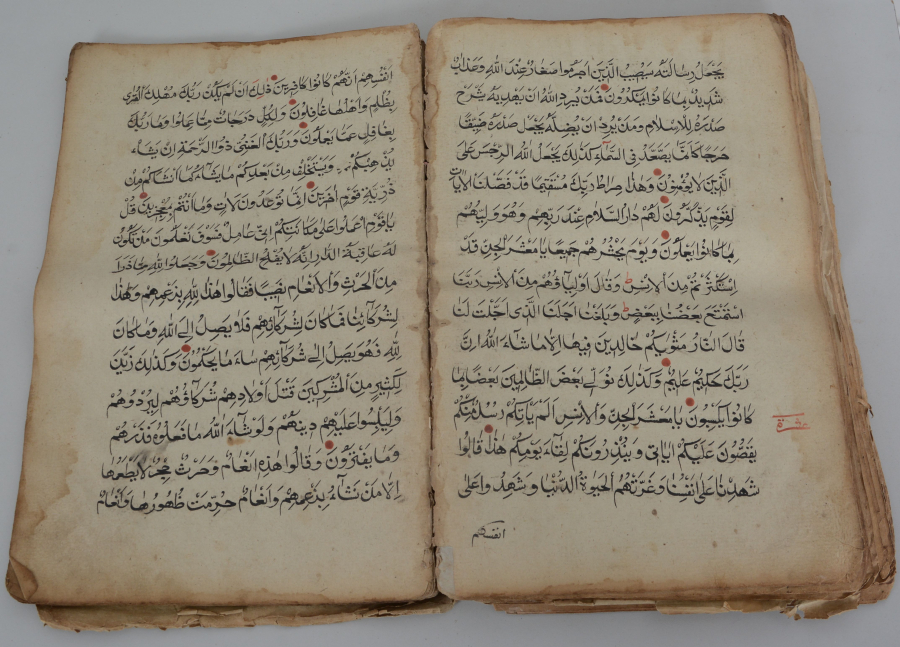 يَجْعَلُ رِسَالَتَهُ سَيُصِيبُ الَّذِينَ اَجْرَمُوا صَغَارٌ عِنْدَ اللّٰهِ وَعَذَابٌ
شَدِيدٌ بِمَا كَانُوا يَمْكُرُونَ فَمَنْ يُرِدِ اللّٰهُ اَنْ يَهْدِيَهُ يَشْرَحْ
صَدْرَهُ لِلْاِسْلَامِ وَمَنْ يُرِدْ اَنْ يُضِلَّهُ يَجْعَلْ صَدْرَهُ ضَيِّقًا
حَرَجًا كَاَنَّمَا يَصَّعَّدُ فِي السَّمَاءِ كَذٰلِكَ يَجْعَلُ اللّٰهُ الرِّجْسَ عَلَى
الَّذِينَ لَا يُؤْمِنُونَ وَهٰذَا صِرَاطُ رَبِّكَ مُسْتَقِيمًا قَدْ فَصَّلْنَا الْاٰيَاتِ
لِقَوْمٍ يَذَّكَّرُونَ لَهُمْ دَارُ السَّلَامِ عِنْدَ رَبِّهِمْ وَهُوَ وَلِيُّهُمْ
بِمَا كَانُوا يَعْمَلُونَ وَيَوْمَ يَحْشُرُهُمْ جَمِيعًا يَا مَعْشَرَ الْجِنِّ قَدِ
اسْتَكْثَرْتُمْ مِنَ الْاِنْسِ وَقَالَ اَوْلِيَاؤُهُمْ مِنَ الْاِنْسِ رَبَّنَا
اسْتَمْتَعَ بَعْضُنَا بِبَعْضٍ وَبَلَغْنَا اَجَلَنَا الَّذِي اَجَّلْتَ لَنَا
قَالَ النَّارُ مَثْوٰيكُمْ خَالِدِينَ فِيهَا اِلَّا مَا شَاءَ اللّٰهُ اِنَّ
رَبَّكَ حَكِيمٌ عَلِيمٌ وَكَذٰلِكَ نُوَلِّي بَعْضَ الظَّالِمِينَ بَعْضًا بِمَا
كَانُوا يَكْسِبُونَ يَا مَعْشَرَ الْجِنِّ وَالْاِنْسِ اَلَمْ يَأْتِكُمْ رُسُلٌ مِنْكُمْ
عشرة
يَقُصُّونَ عَلَيْكُمْ اٰيَاتِي وَيُنْذِرُونَكُمْ لِقَاءَ يَوْمِكُمْ هٰذَا قَالُوا
شَهِدْنَا عَلٰى اَنْفُسِنَا وَغَرَّتْهُمُ الْحَيٰوةُ الدُّنْيَا وَشَهِدُوا عَلٰى
انفسهم
اَنْفُسِهِمْ اَنَّهُمْ كَانُوا كَافِرِينَ ذٰلِكَ اَنْ لَمْ يَكُنْ رَبُّكَ مُهْلِكَ الْقُرٰى
بِظُلْمٍ وَاَهْلُهَا غَافِلُونَ وَلِكُلٍّ دَرَجَاتٌ مِمَّا عَمِلُوا وَمَا رَبُّكَ
بِغَافِلٍ عَمَّا يَعْمَلُونَ وَرَبُّكَ الْغَنِيُّ ذُو الرَّحْمَةِ اِنْ يَشَأْ
يُذْهِبْكُمْ وَيَسْتَخْلِفْ مِنْ بَعْدِكُمْ مَا يَشَاءُ كَمَا اَنْشَاَكُمْ مِنْ
ذُرِّيَّةِ قَوْمٍ اٰخَرِينَ اِنَّمَا تُوعَدُونَ لَاٰتٍ وَمَا اَنْتُمْ بِمُعْجِزِينَ قُلْ
يَا قَوْمِ اعْمَلُوا عَلٰى مَكَانَتِكُمْ اِنِّي عَامِلٌ فَسَوْفَ تَعْلَمُونَ مَنْ تَكُونُ
لَهُ عَاقِبَةُ الدَّارِ اِنَّهُ لَا يُفْلِحُ الظَّالِمُونَ وَجَعَلُوا لِلّٰهِ مِمَّا ذَرَاَ
مِنَ الْحَرْثِ وَالْاَنْعَامِ نَصِيبًا فَقَالُوا هٰذَا لِلّٰهِ بِزَعْمِهِمْ وَهٰذَا
لِشُرَكَائِنَا فَمَا كَانَ لِشُرَكَائِهِمْ فَلَا يَصِلُ اِلَى اللّٰهِ وَمَا كَانَ
لِلّٰهِ فَهُوَ يَصِلُ اِلٰى شُرَكَائِهِمْ سَاءَ مَا يَحْكُمُونَ وَكَذٰلِكَ زَيَّنَ
لِكَثِيرٍ مِنَ الْمُشْرِكِينَ قَتْلَ اَوْلَادِهِمْ شُرَكَاؤُهُمْ لِيُرْدُوهُمْ
وَلِيَلْبِسُوا عَلَيْهِمْ دِينَهُمْ وَلَوْ شَاءَ اللّٰهُ مَا فَعَلُوهُ فَذَرْهُمْ
وَمَا يَفْتَرُونَ وَقَالُوا هٰذِهِ اَنْعَامٌ وَحَرْثٌ حِجْرٌ لَا يَطْعَمُهَا
اِلَّا مَنْ نَشَاءُ بِزَعْمِهِمْ وَاَنْعَامٌ حُرِّمَتْ ظُهُورُهَا وَاَنْعَامٌ